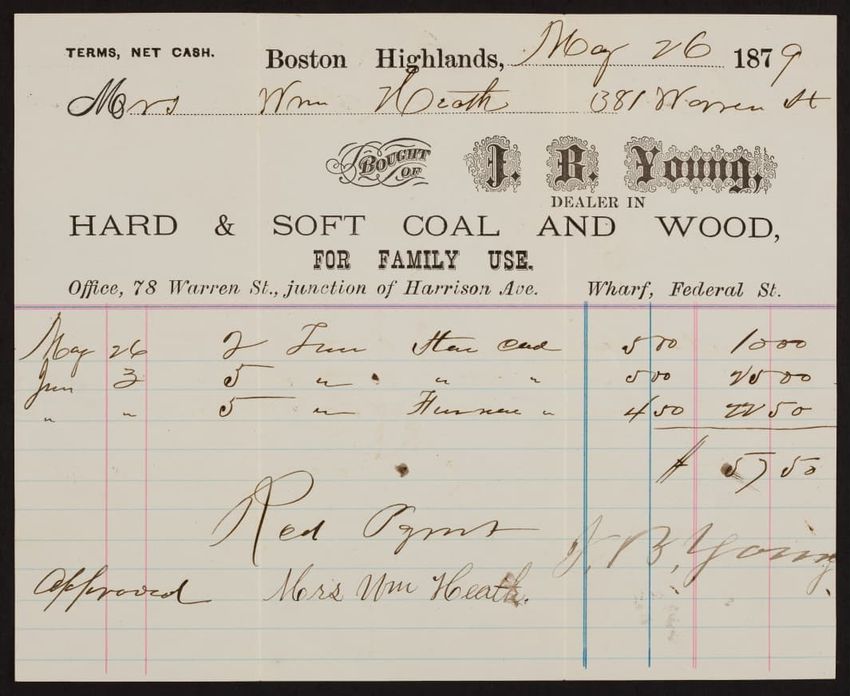 TERMS, NET CASH.
Boston Highlands, May 26 1879
Mrs Wm Heath 381 Warren St
BOUGHT OF J. B. Young,
DEALER IN
HARD & SOFT COAL AND WOOD,
FOR FAMILY USE.
Office, 78 Warren St., junction of Harrison Ave. Wharf, Federal St.
May 26 2 Stove Coal 5 00 10 00
Jun 3 5 " " " 5 00 25 00
" " 5 " Furnace " 4 50 22 50
$ 57 50
Recd Paymt J. B. Young
Approved Mrs Wm Heath.